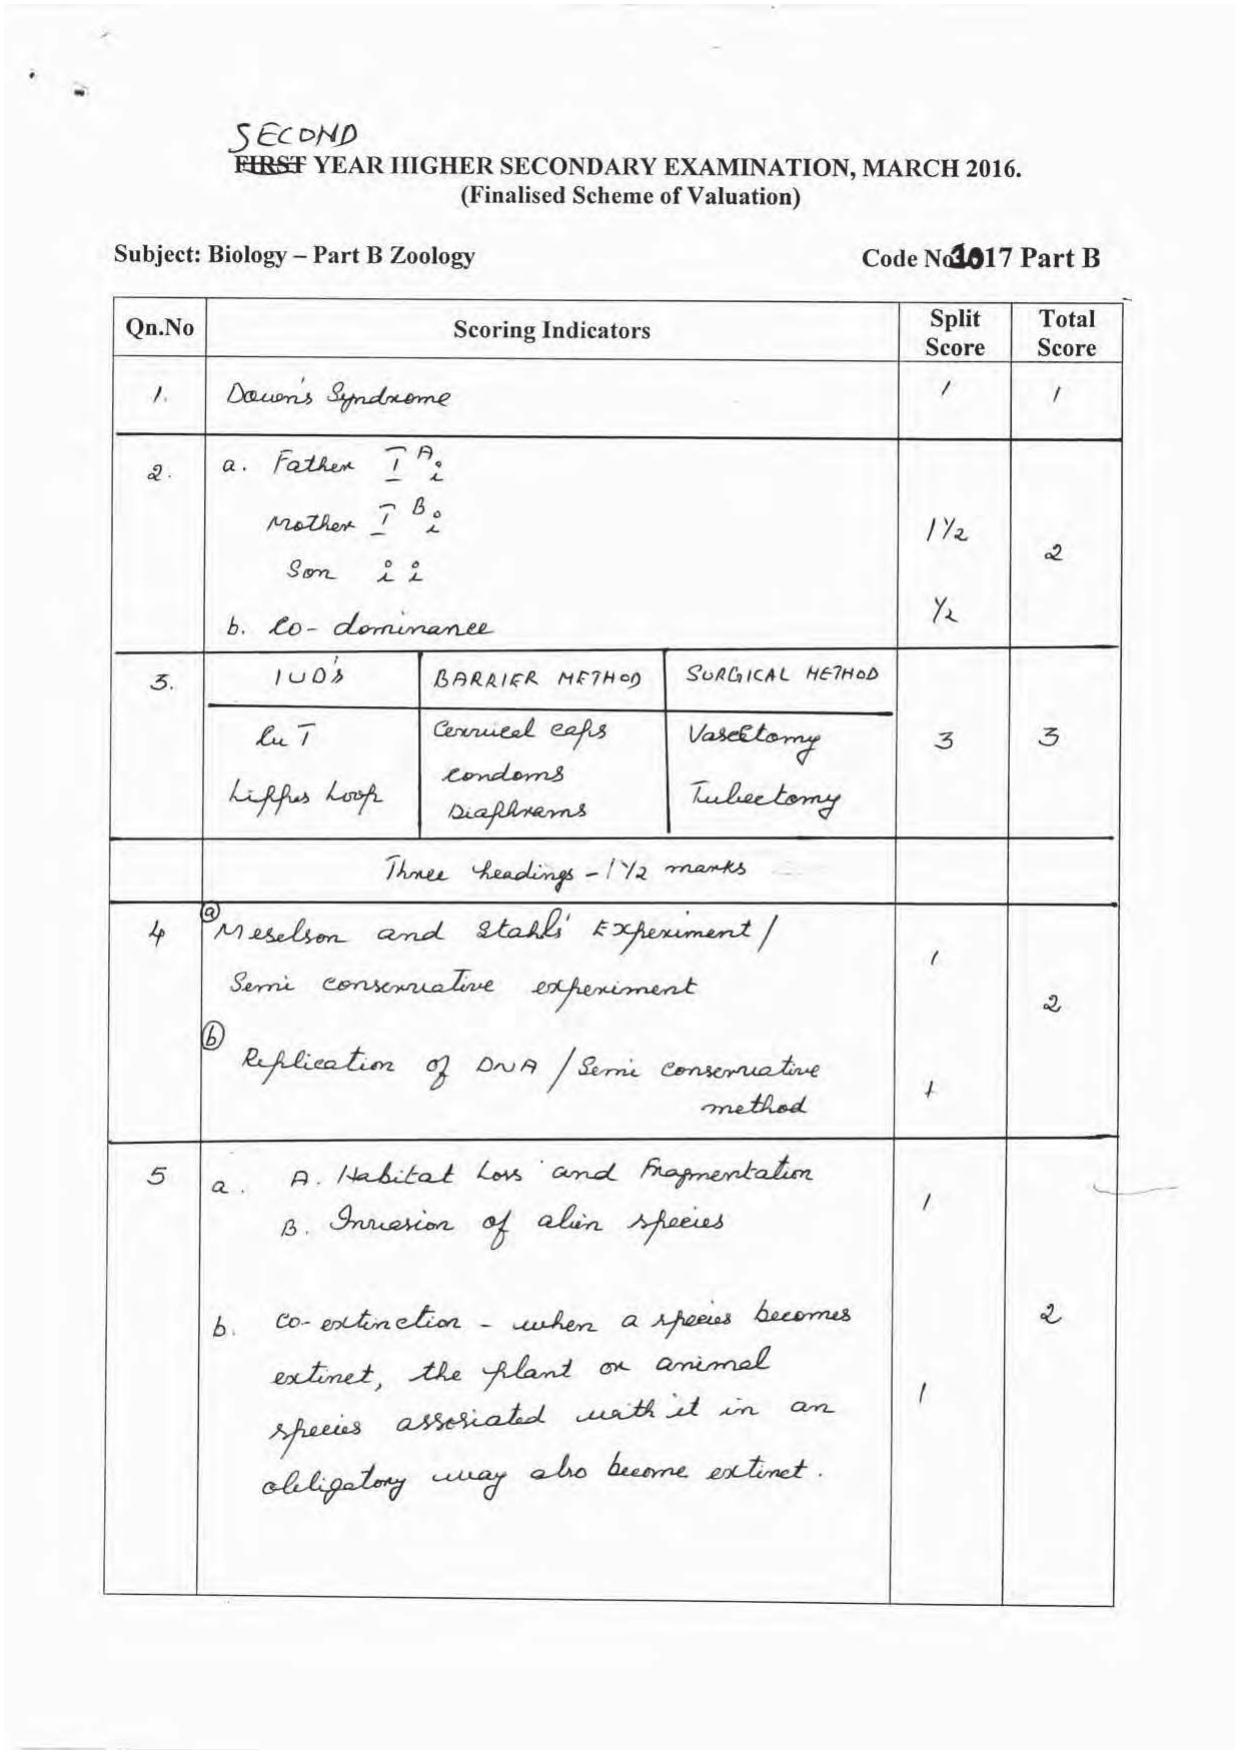 SECOND
FIRST YEAR HIGHER SECONDARY EXAMINATION, MARCH 2016.
(Finalised Scheme of Valuation)
Subject: Biology – Part B Zoology Code No 3017 Part B
Qn.No Scoring Indicators Split Score Total Score
1. Down's Syndrome 1 1
2. a. Father I^A i
Mother I^B i 1½
Son i i 2
b. Co-dominance ½
3. IUD's BARRIER METHOD SURGICAL METHOD
Cu T Cervical caps Vasectomy 3 3
Lippes Loop condoms Tubectomy
Diaphrams
Three headings - 1½ marks
4 (a) Meselson and Stahl's Experiment /
1
Semi conservative experiment
2
(b) Replication of DNA / Semi conservative
method 1
5 a. A. Habitat Loss and Fragmentation
B. Invasion of alien species 1
b. Co-extinction - when a species becomes 2
extinct, the plant or animal
species associated with it in an 1
obligatory way also become extinct.